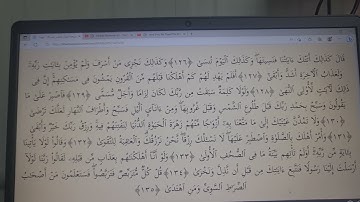 قَالَ كَذَٰلِكَ أَتَتْكَ ءَايَٰتُنَا فَنَسِيتَهَا ۖ وَكَذَٰلِكَ ٱلْيَوْمَ تُنسَىٰ ﴿١٢٦﴾ وَكَذَٰلِكَ نَجْزِى مَنْ أَسْرَفَ وَلَمْ يُؤْمِنۢ بِـَٔايَٰتِ رَبِّهِۦ ۚ
وَلَعَذَابُ ٱلْءَاخِرَةِ أَشَدُّ وَأَبْقَىٰٓ ﴿١٢٧﴾ أَفَلَمْ يَهْدِ لَهُمْ كَمْ أَهْلَكْنَا قَبْلَهُم مِّنَ ٱلْقُرُونِ يَمْشُونَ فِى مَسَٰكِنِهِمْ ۗ إِنَّ فِى
ذَٰلِكَ لَءَايَٰتٍ لِّأُو۟لِى ٱلنُّهَىٰ ﴿١٢٨﴾ وَلَوْلَا كَلِمَةٌ سَبَقَتْ مِن رَّبِّكَ لَكَانَ لِزَامًا وَأَجَلٌ مُّسَمًّى ﴿١٢٩﴾ فَٱصْبِرْ عَلَىٰ مَا
يَقُولُونَ وَسَبِّحْ بِحَمْدِ رَبِّكَ قَبْلَ طُلُوعِ ٱلشَّمْسِ وَقَبْلَ غُرُوبِهَا ۖ وَمِنْ ءَانَآئِ ٱلَّيْلِ فَسَبِّحْ وَأَطْرَافَ ٱلنَّهَارِ لَعَلَّكَ تَرْضَىٰ
﴿١٣٠﴾ وَلَا تَمُدَّنَّ عَيْنَيْكَ إِلَىٰ مَا مَتَّعْنَا بِهِۦٓ أَزْوَٰجًا مِّنْهُمْ زَهْرَةَ ٱلْحَيَوٰةِ ٱلدُّنْيَا لِنَفْتِنَهُمْ فِيهِ ۚ وَرِزْقُ رَبِّكَ خَيْرٌ وَأَبْقَىٰ
﴿١٣١﴾ وَأْمُرْ أَهْلَكَ بِٱلصَّلَوٰةِ وَٱصْطَبِرْ عَلَيْهَا ۖ لَا نَسْـَٔلُكَ رِزْقًا ۖ نَّحْنُ نَرْزُقُكَ ۗ وَٱلْعَٰقِبَةُ لِلتَّقْوَىٰ ﴿١٣٢﴾ وَقَالُوا۟ لَوْلَا يَأْتِينَا
بِـَٔايَةٍ مِّن رَّبِّهِۦٓ ۚ أَوَلَمْ تَأْتِهِم بَيِّنَةُ مَا فِى ٱلصُّحُفِ ٱلْأُولَىٰ ﴿١٣٣﴾ وَلَوْ أَنَّآ أَهْلَكْنَٰهُم بِعَذَابٍ مِّن قَبْلِهِۦ لَقَالُوا۟ رَبَّنَا لَوْلَآ
أَرْسَلْتَ إِلَيْنَا رَسُولًا فَنَتَّبِعَ ءَايَٰتِكَ مِن قَبْلِ أَن نَّذِلَّ وَنَخْزَىٰ ﴿١٣٤﴾ قُلْ كُلٌّ مُّتَرَبِّصٌ فَتَرَبَّصُوا۟ ۖ فَسَتَعْلَمُونَ مَنْ أَصْحَٰبُ
ٱلصِّرَٰطِ ٱلسَّوِىِّ وَمَنِ ٱهْتَدَىٰ ﴿١٣٥﴾